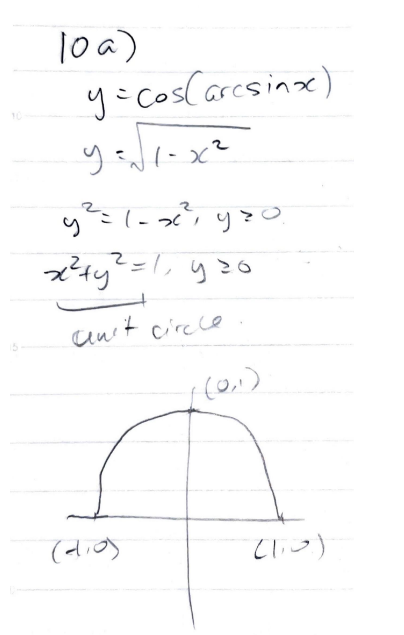 10 a)
y = cos(arcsinx)
y = √(1 - x²)
y² = 1 - x², y ≥ 0
x² + y² = 1, y ≥ 0
unit circle.
(0,1)
(-1,0) (1,0)